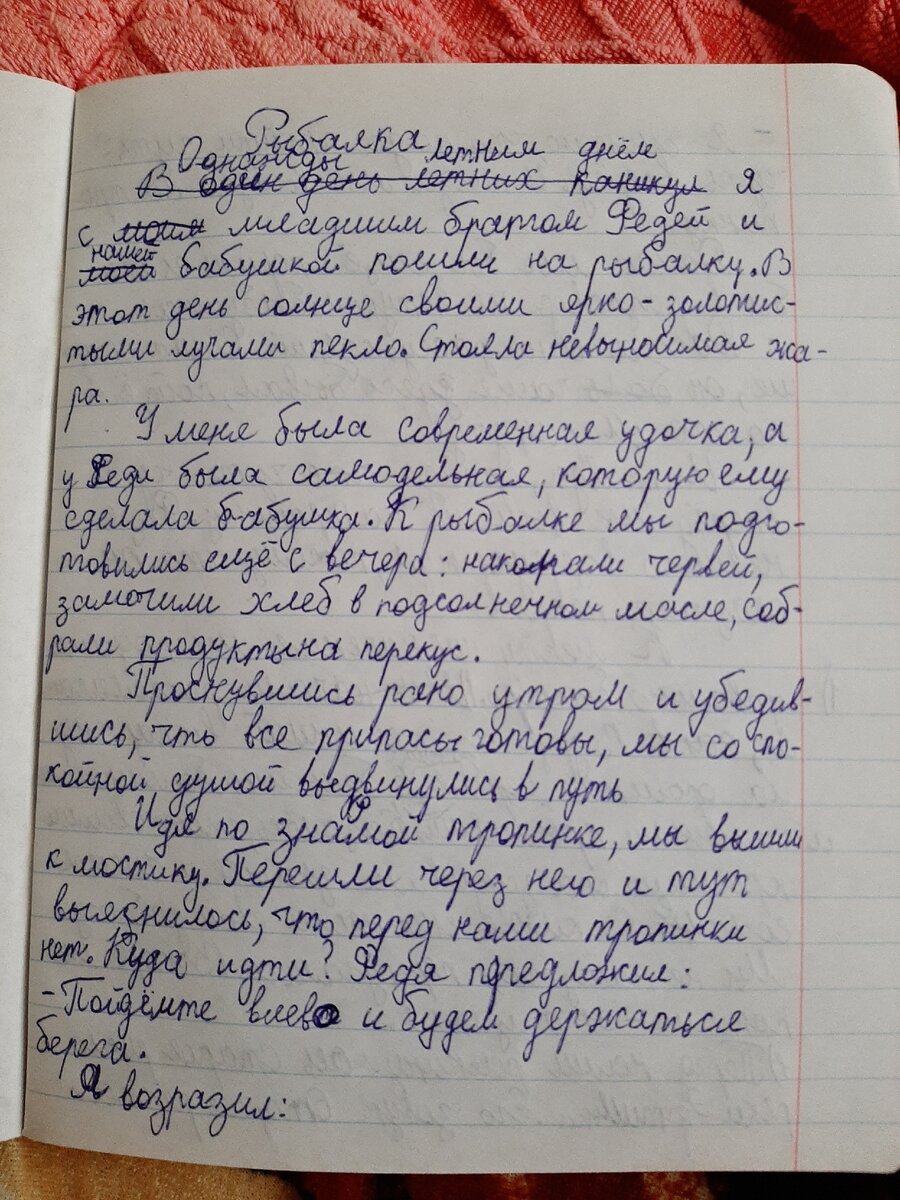 Рыбалка
Однажды летним днём
В один день летних каникул я
с моим младшим братом Федей и
нашей
моей бабушкой пошли на рыбалку. В
этот день солнце своими ярко-золотис-
тыми лучами пекло. Стояла невыносимая жа-
ра.
У меня была современная удочка, а
у Феди была самодельная, которую ему
сделала бабушка. К рыбалке мы подго-
товились ещё с вечера: накопали червей,
замочили хлеб в подсолнечном масле, соб-
рали продукты на перекус.
Проснувшись рано утром и убедив-
шись, что все припасы готовы, мы со спо-
койной душой выдвинулись в путь
Идя по знамой тропинке, мы вышли
к мостику. Перешли через него и тут
выяснилось, что перед нами тропинки
нет. Куда идти? Федя предложил:
-Пойдёмте влево и будем держаться
берега.
Я возразил: